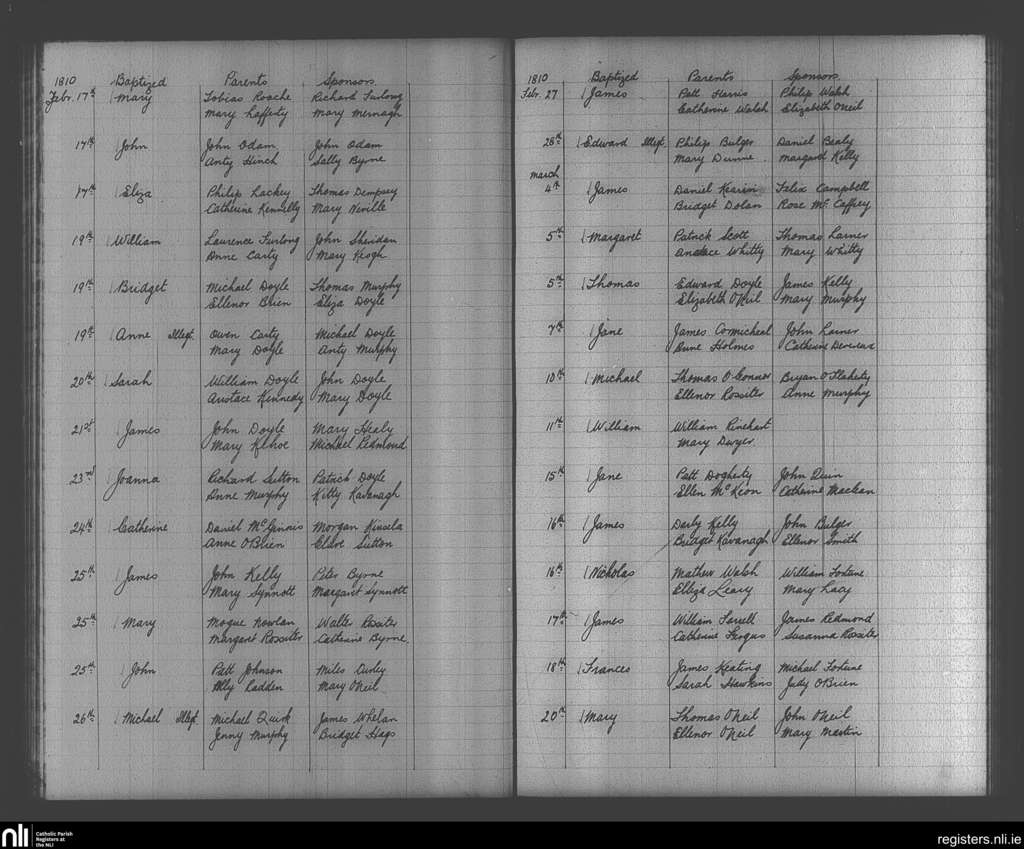 1810 Baptized Parents Sponsors
Febr. 17th Mary Tobias Roache Richard Furlong
Mary Lafferty Mary Mernagh
17th John John Odam John Odam
Anty Hinch Sally Byrne
17th Eliza Philip Lackey Thomas Dempsey
Catherine Kennelly Mary Neville
19th William Laurence Furlong John Sheridan
Anne Carty Mary Keogh
19th Bridget Michael Doyle Thomas Murphy
Ellenor Brien Eliza Doyle
19th Anne Illegt. Owen Carty Michael Doyle
Mary Doyle Anty Murphy
20th Sarah William Doyle John Doyle
Anstace Kennedy Mary Doyle
21st James John Doyle Mary Healy
Mary Kehoe Michael Redmond
23rd Joanna Richard Sutton Patrick Doyle
Anne Murphy Kitty Kavanagh
24th Catherine Daniel McGinnis Morgan Kinsela
Anne OBrien Clare Sutton
25th James John Kelly Peter Byrne
Mary Synnott Margaret Synnott
25th Mary Mogue Nowlan Walter Rositer
Margaret Rossiter Catherine Byrne.
25th John Patt Johnson Miles
Ally Cadden Mary ONeil
26th Michael Illegt. Michael Quirk James Whelan
Jenny Murphy Bridget Hays
1810 Baptized Parents Sponsors
Febr. 27 James Patt Harris Philip Walsh
Catherine Walsh Elizabeth ONeil
28th Edward Illegt. Philip Bulger Daniel Bealy
Mary Dunne Margaret Kelly
March
4th James Daniel Kearin Felix Campbell
Bridget Dolan Rose Mc Caffrey
5th Margaret Patrick Scott Thomas Larner
Anstace Whitty Mary Whitty
5th Thomas Edward Doyle James Kelly
Elizabeth ONeil Mary Murphy
7th Jane James Cormicheal John Larner
Anne Holmes Catherine Devereux
10th Michael Thomas O'Connor Bryan O'Flaherty
Ellenor Rossiter Anne Murphy
11th William William Rinehart
Mary Dwyer
15th Jane Patt Dogherty John Quin
Ellen McKeon Catherine Maclean
16th James Darly Kelly John Bulger
Bridget Kavanagh Ellenor Smith
16th Nicholas Mathew Walsh William Fortune
Elliza Leary Mary Lacy
17th James William Farrell James Redmond
Catherine Fergus Susanna Rossiter
18th Frances James Keating Michael Fortune
Sarah Hawkins Judy OBrien
20th Mary Thomas ONeil John ONeil
Ellenor ONeil Mary Martin
nli Catholic Parish
Registers at
the NLI
registers.nli.ie